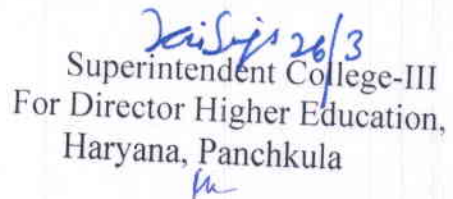 26/3
Superintendent College-III
For Director Higher Education,
Haryana, Panchkula